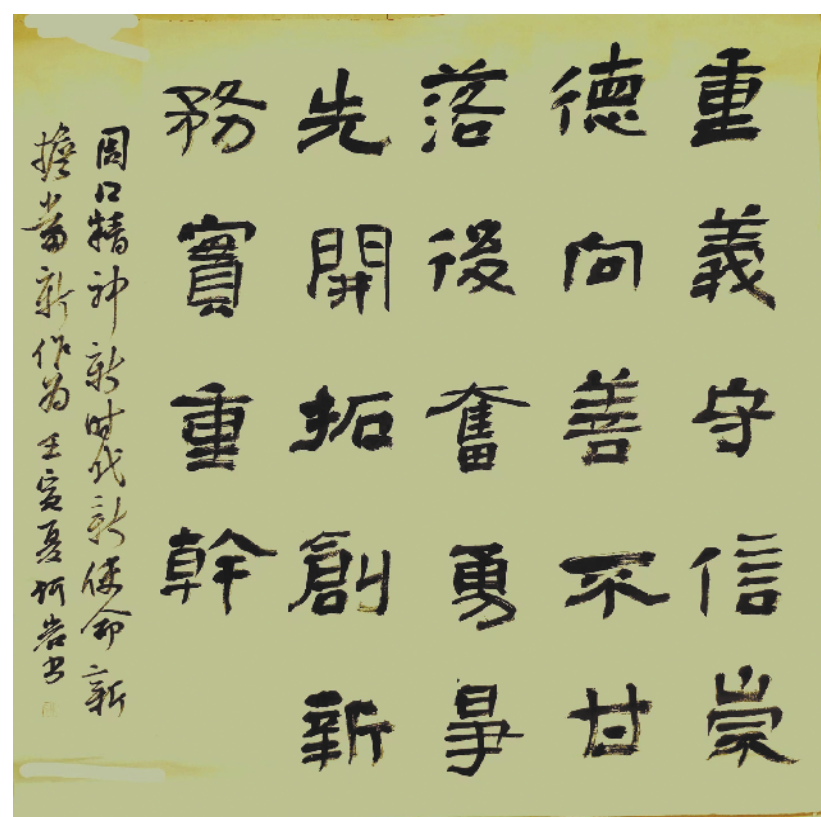 重義守信崇
德向善不甘
落後奮勇爭
先開拓創新
務實重幹
周口精神新时代新使命新
擔當新作为 壬寅夏 岩书